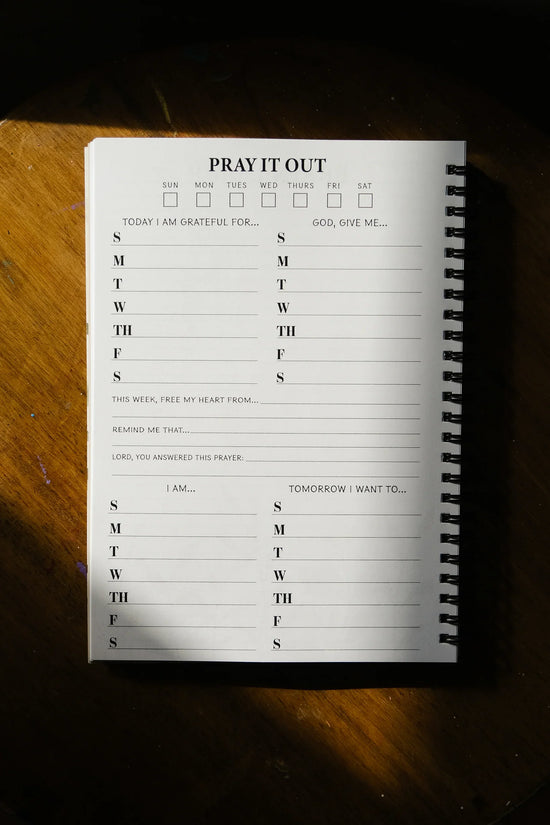 PRAY IT OUT
SUN MON TUES WED THURS FRI SAT
TODAY I AM GRATEFUL FOR... GOD, GIVE ME...
S S
M M
T T
W W
TH TH
F F
S S
THIS WEEK, FREE MY HEART FROM...
REMIND ME THAT...
LORD, YOU ANSWERED THIS PRAYER:
I AM... TOMORROW I WANT TO...
S S
M M
T T
W W
TH TH
F F
S S